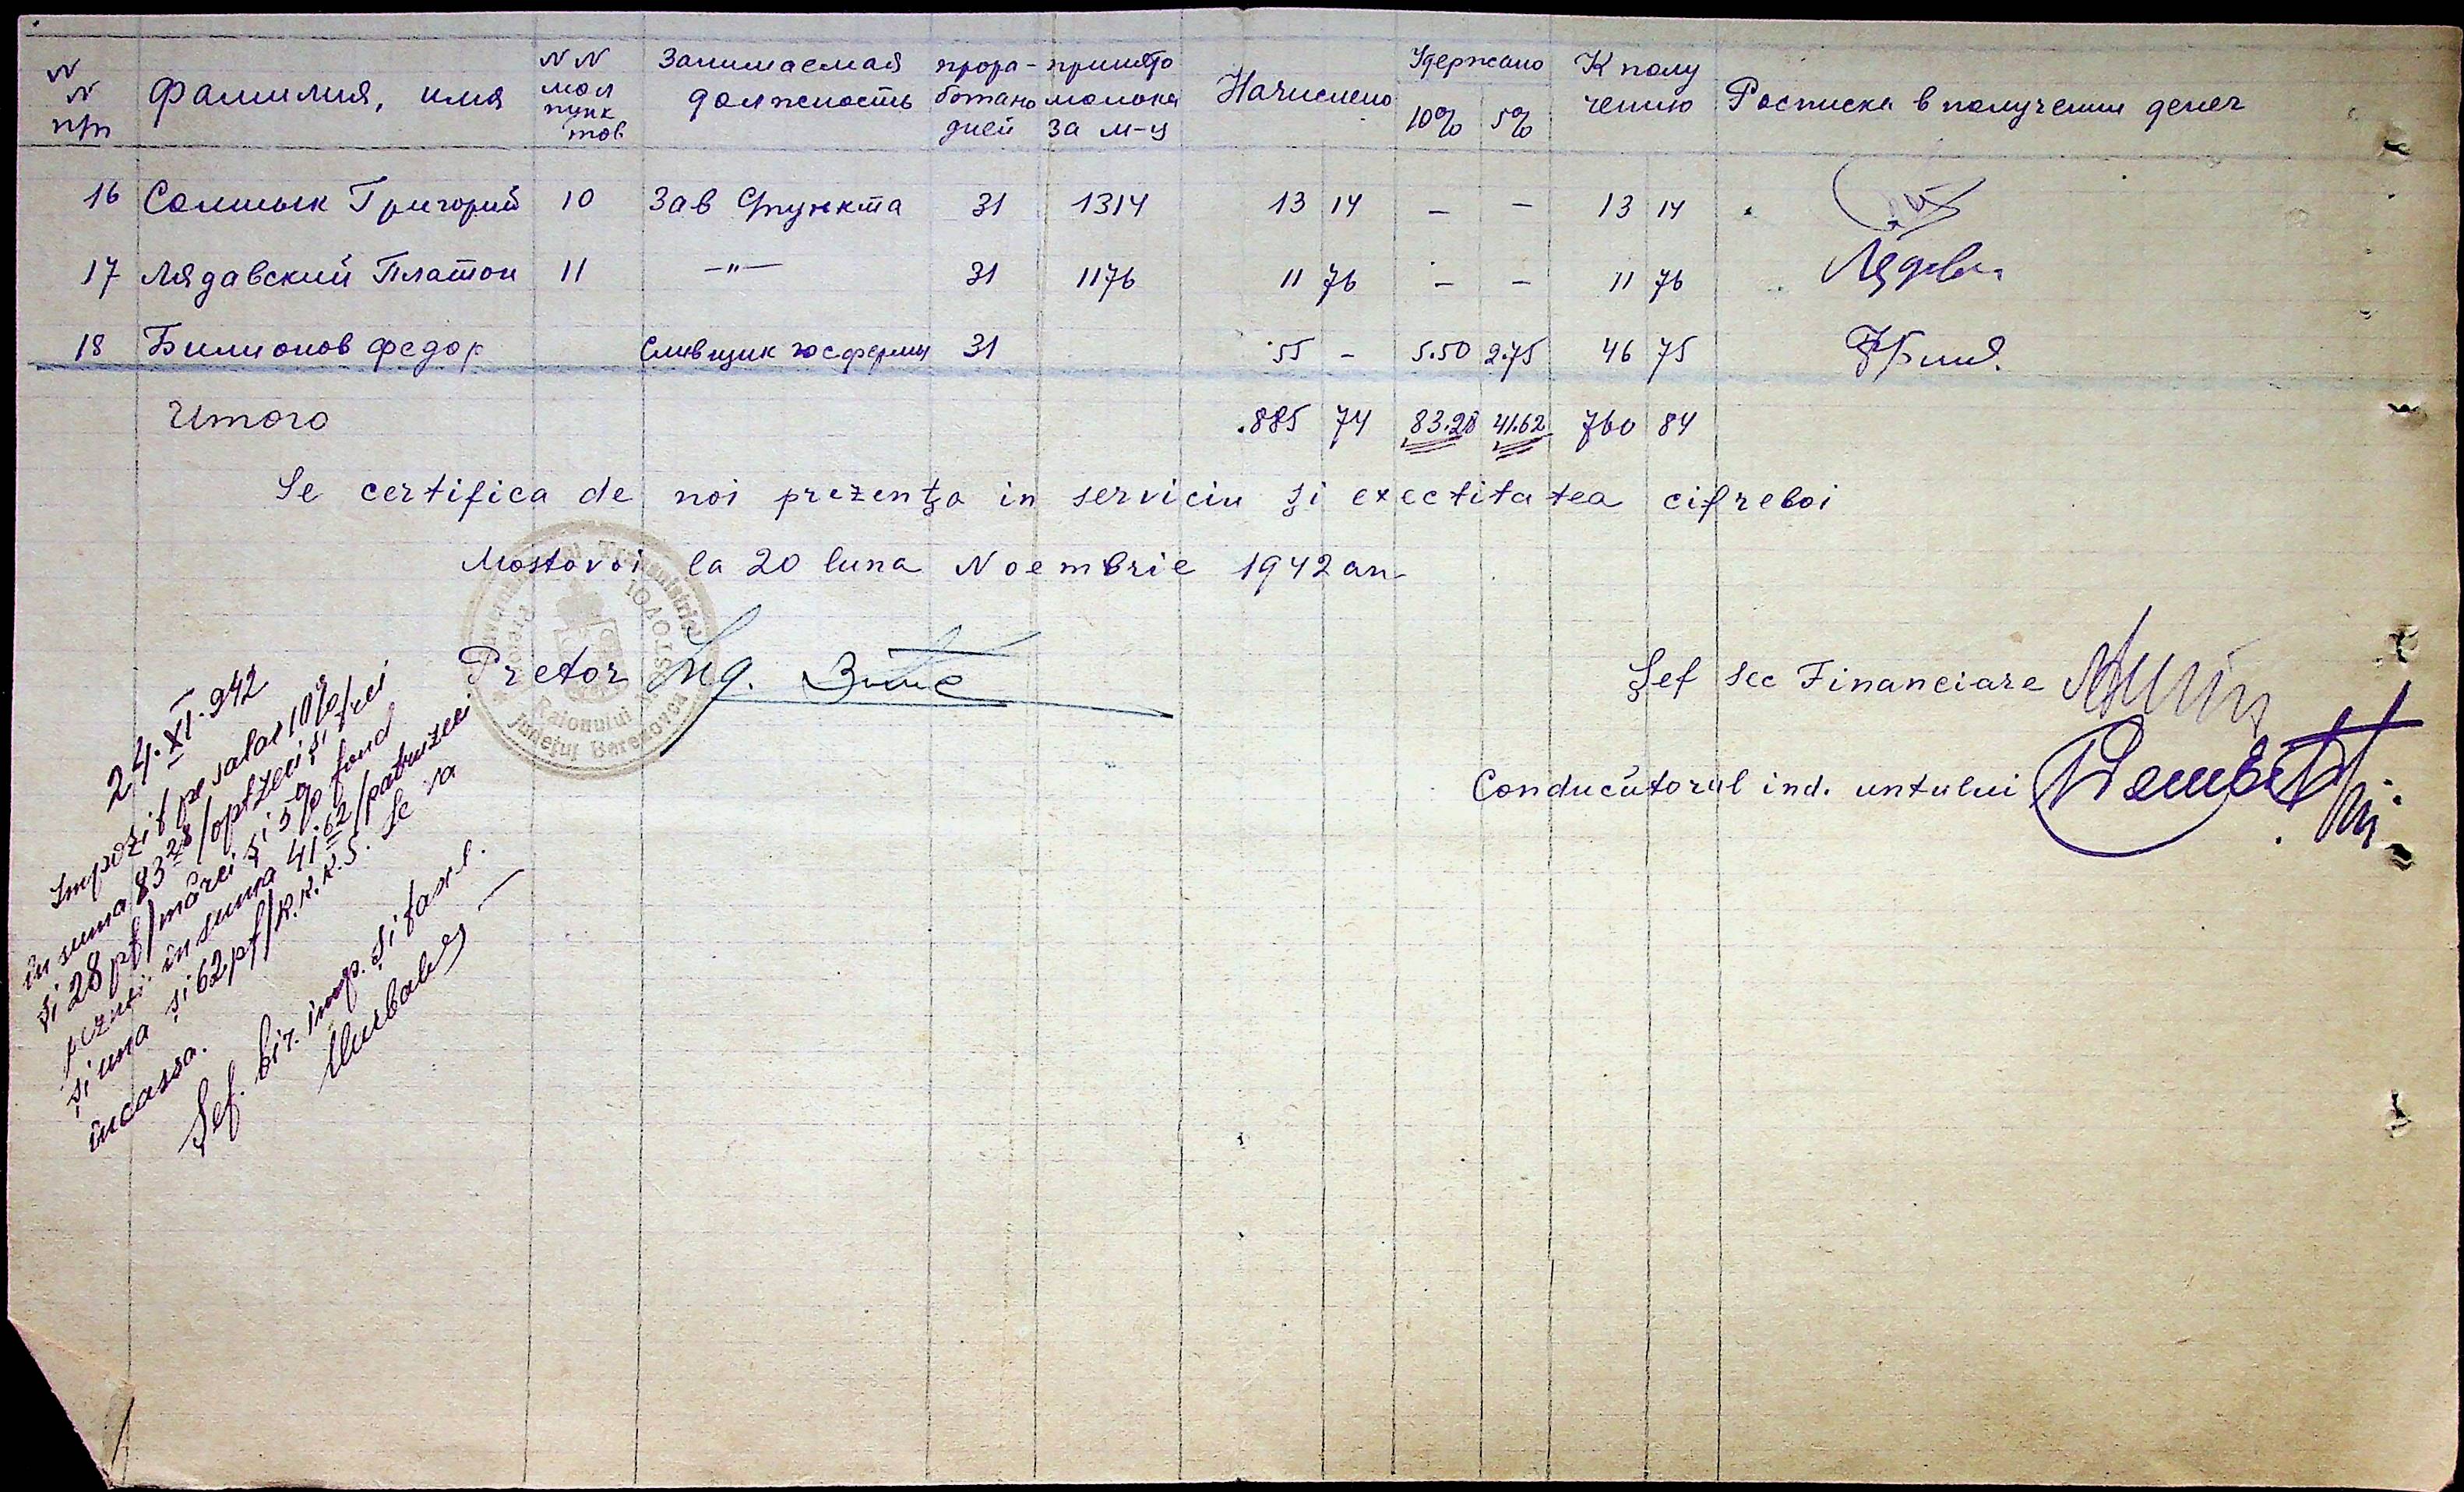 N N п/п | Фамилия, имя | N N мол пунктов | Занимаемая должность | прора-ботано дней | принято молока за м-ц | Начислено | Удержано 10% 5% | К полу чению | Расписка в получении денег
16 Солтык Григорий 10 Зав Ӷпункта 31 1314 13 14 – – 13 14
17 Лядавский Платон 11 –"– 31 1176 11 76 – – 11 76
18 Билионов Федор Сливщик госфермы 31 55 – 5.50 2.75 46 75
Итого 885 74 83.28 41.62 760 84
Se certifica de noi prezenţa in serviciu şi exectitatea cifreloi
Mostovoi la 20 luna Noembrie 1942 an
Pretor Ing.
Şef sec Financiare
Conducătorul ind. untului
Raionului
Judeţul Berezovca
24.XI.942
Impozit pe salar 10%
în suma 83 28 /optzeci şi trei
şi 28 pf/mărci şi 5% fond
în suma 41 62 /patruzeci
şi una şi 62 pf/R.K.K.S. Se va
incassa.
Şef. bir. imp. şi taxe.